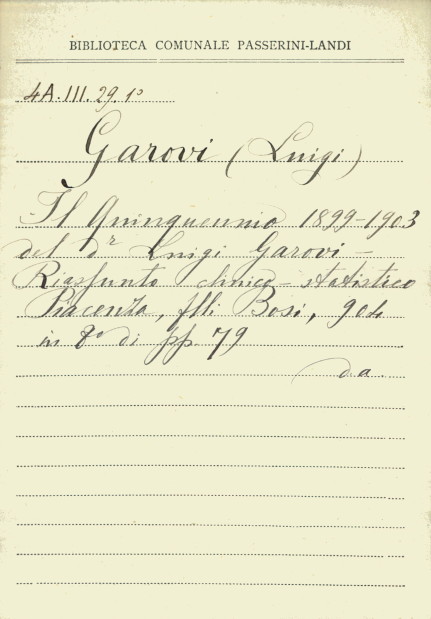 BIBLIOTECA COMUNALE PASSERINI-LANDI
4A.III.29.1º
Garovi (Luigi)
Il Quinquennio 1899-1903
del dr Luigi Garovi -
Riassunto clinico-statistico
Piacenza, flli Bosi, 904
in 8º di pp. 79
d.a.